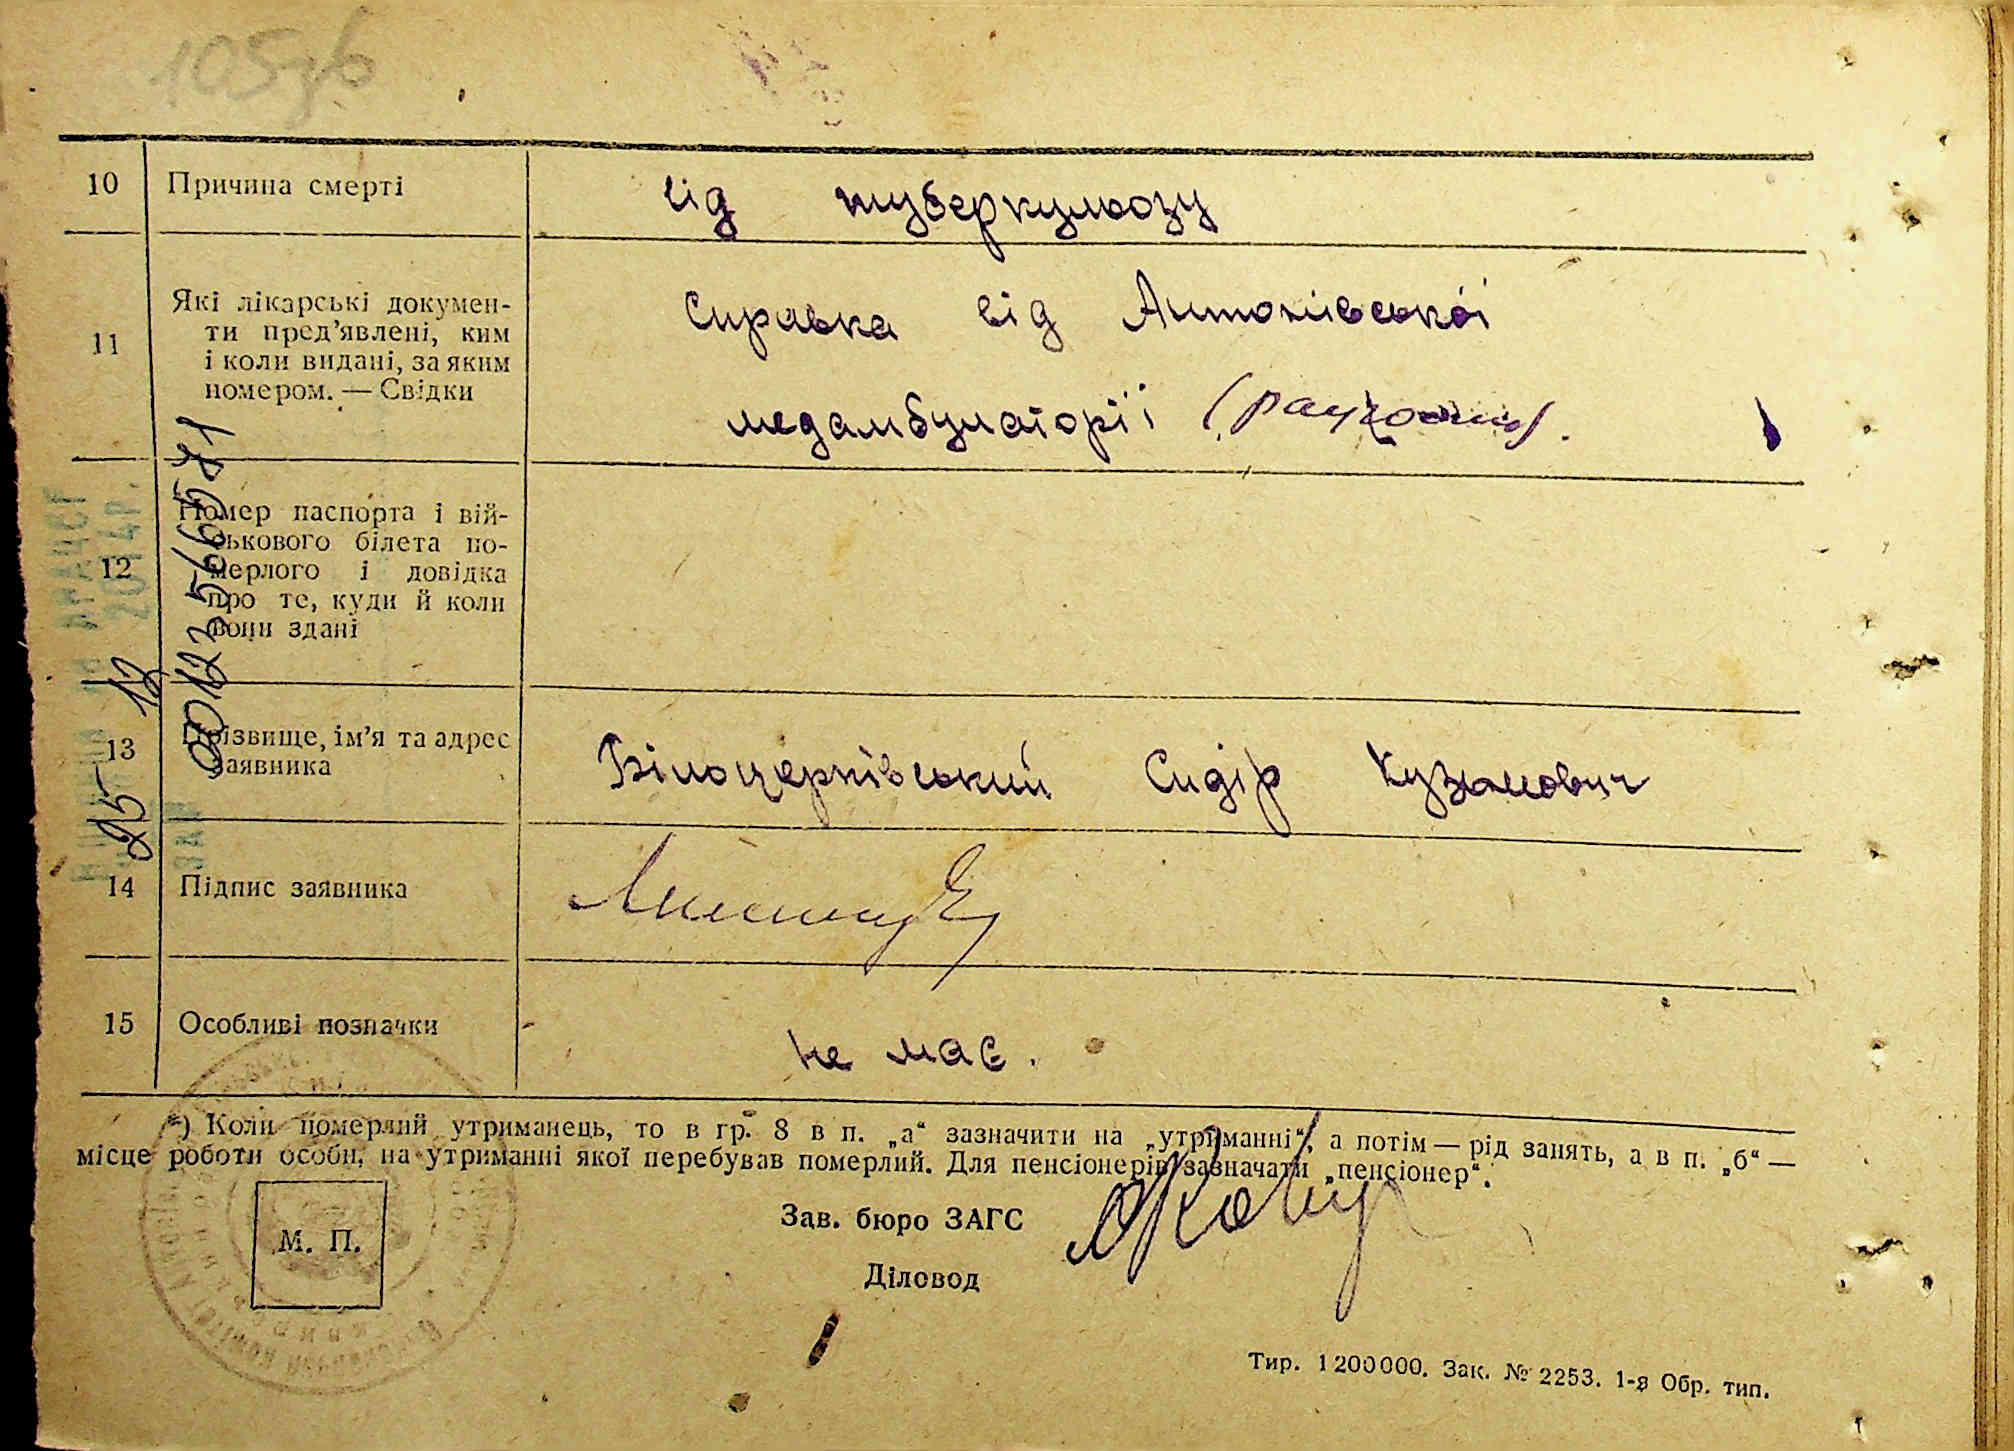 105зв
10 Причина смерті
від туберкульозу
11 Які лікарські докумен-
ти пред’явлені, ким
і коли видані, за яким
номером. — Свідки
Справка від Антонівської
медамбулаторії
12 Номер паспорта і вій-
ськового білета по-
мерлого і довідка
про те, куди й коли
вони здані
00123566581
25 12
13 Прізвище, ім’я та адрес
заявника
Білоцерківський Сидір Кузьмович
14 Підпис заявника
15 Особливі позначки
не має.
*) Коли померлий утриманець, то в гр. 8 в п. „а“ зазначити на „утриманні“, а потім — рід занять, а в п. „б“ —
місце роботи особи, на утриманні якої перебував померлий. Для пенсіонерів зазначати „пенсіонер“.
М. П.
Зав. бюро ЗАГС
Діловод
Тир. 1200000. Зак. № 2253. 1-я Обр. тип.